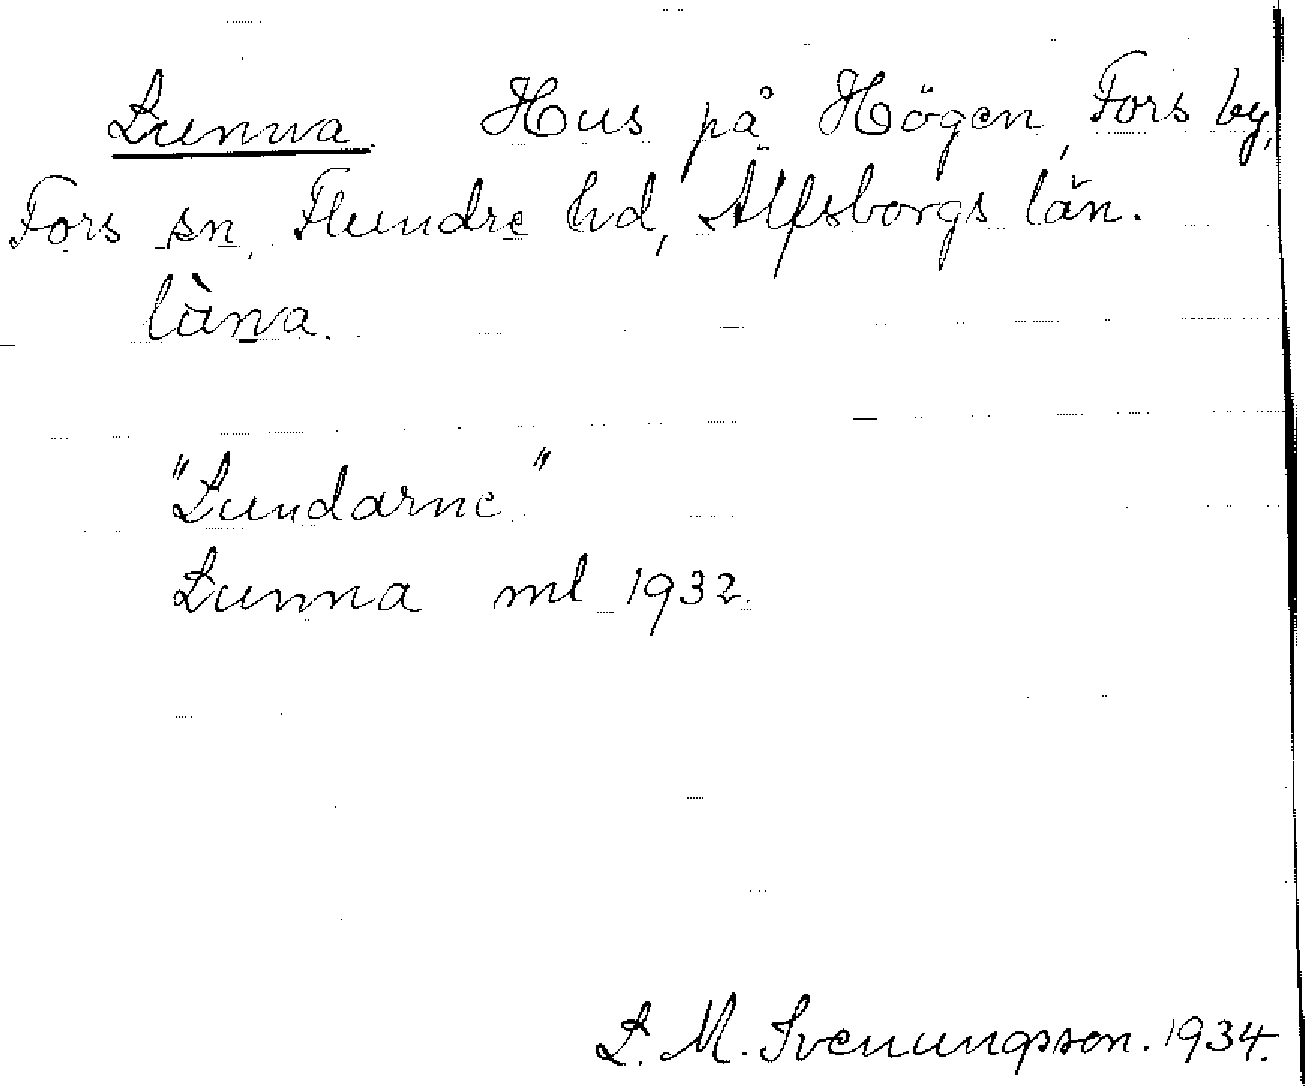 Lunna. Hus på Högen, Fors by,
Fors sn, Flundre hd, Älfsborgs län.
làna.
"Lundarne"
Lunna ml 1932.
L. M. Svenungsson. 1934.